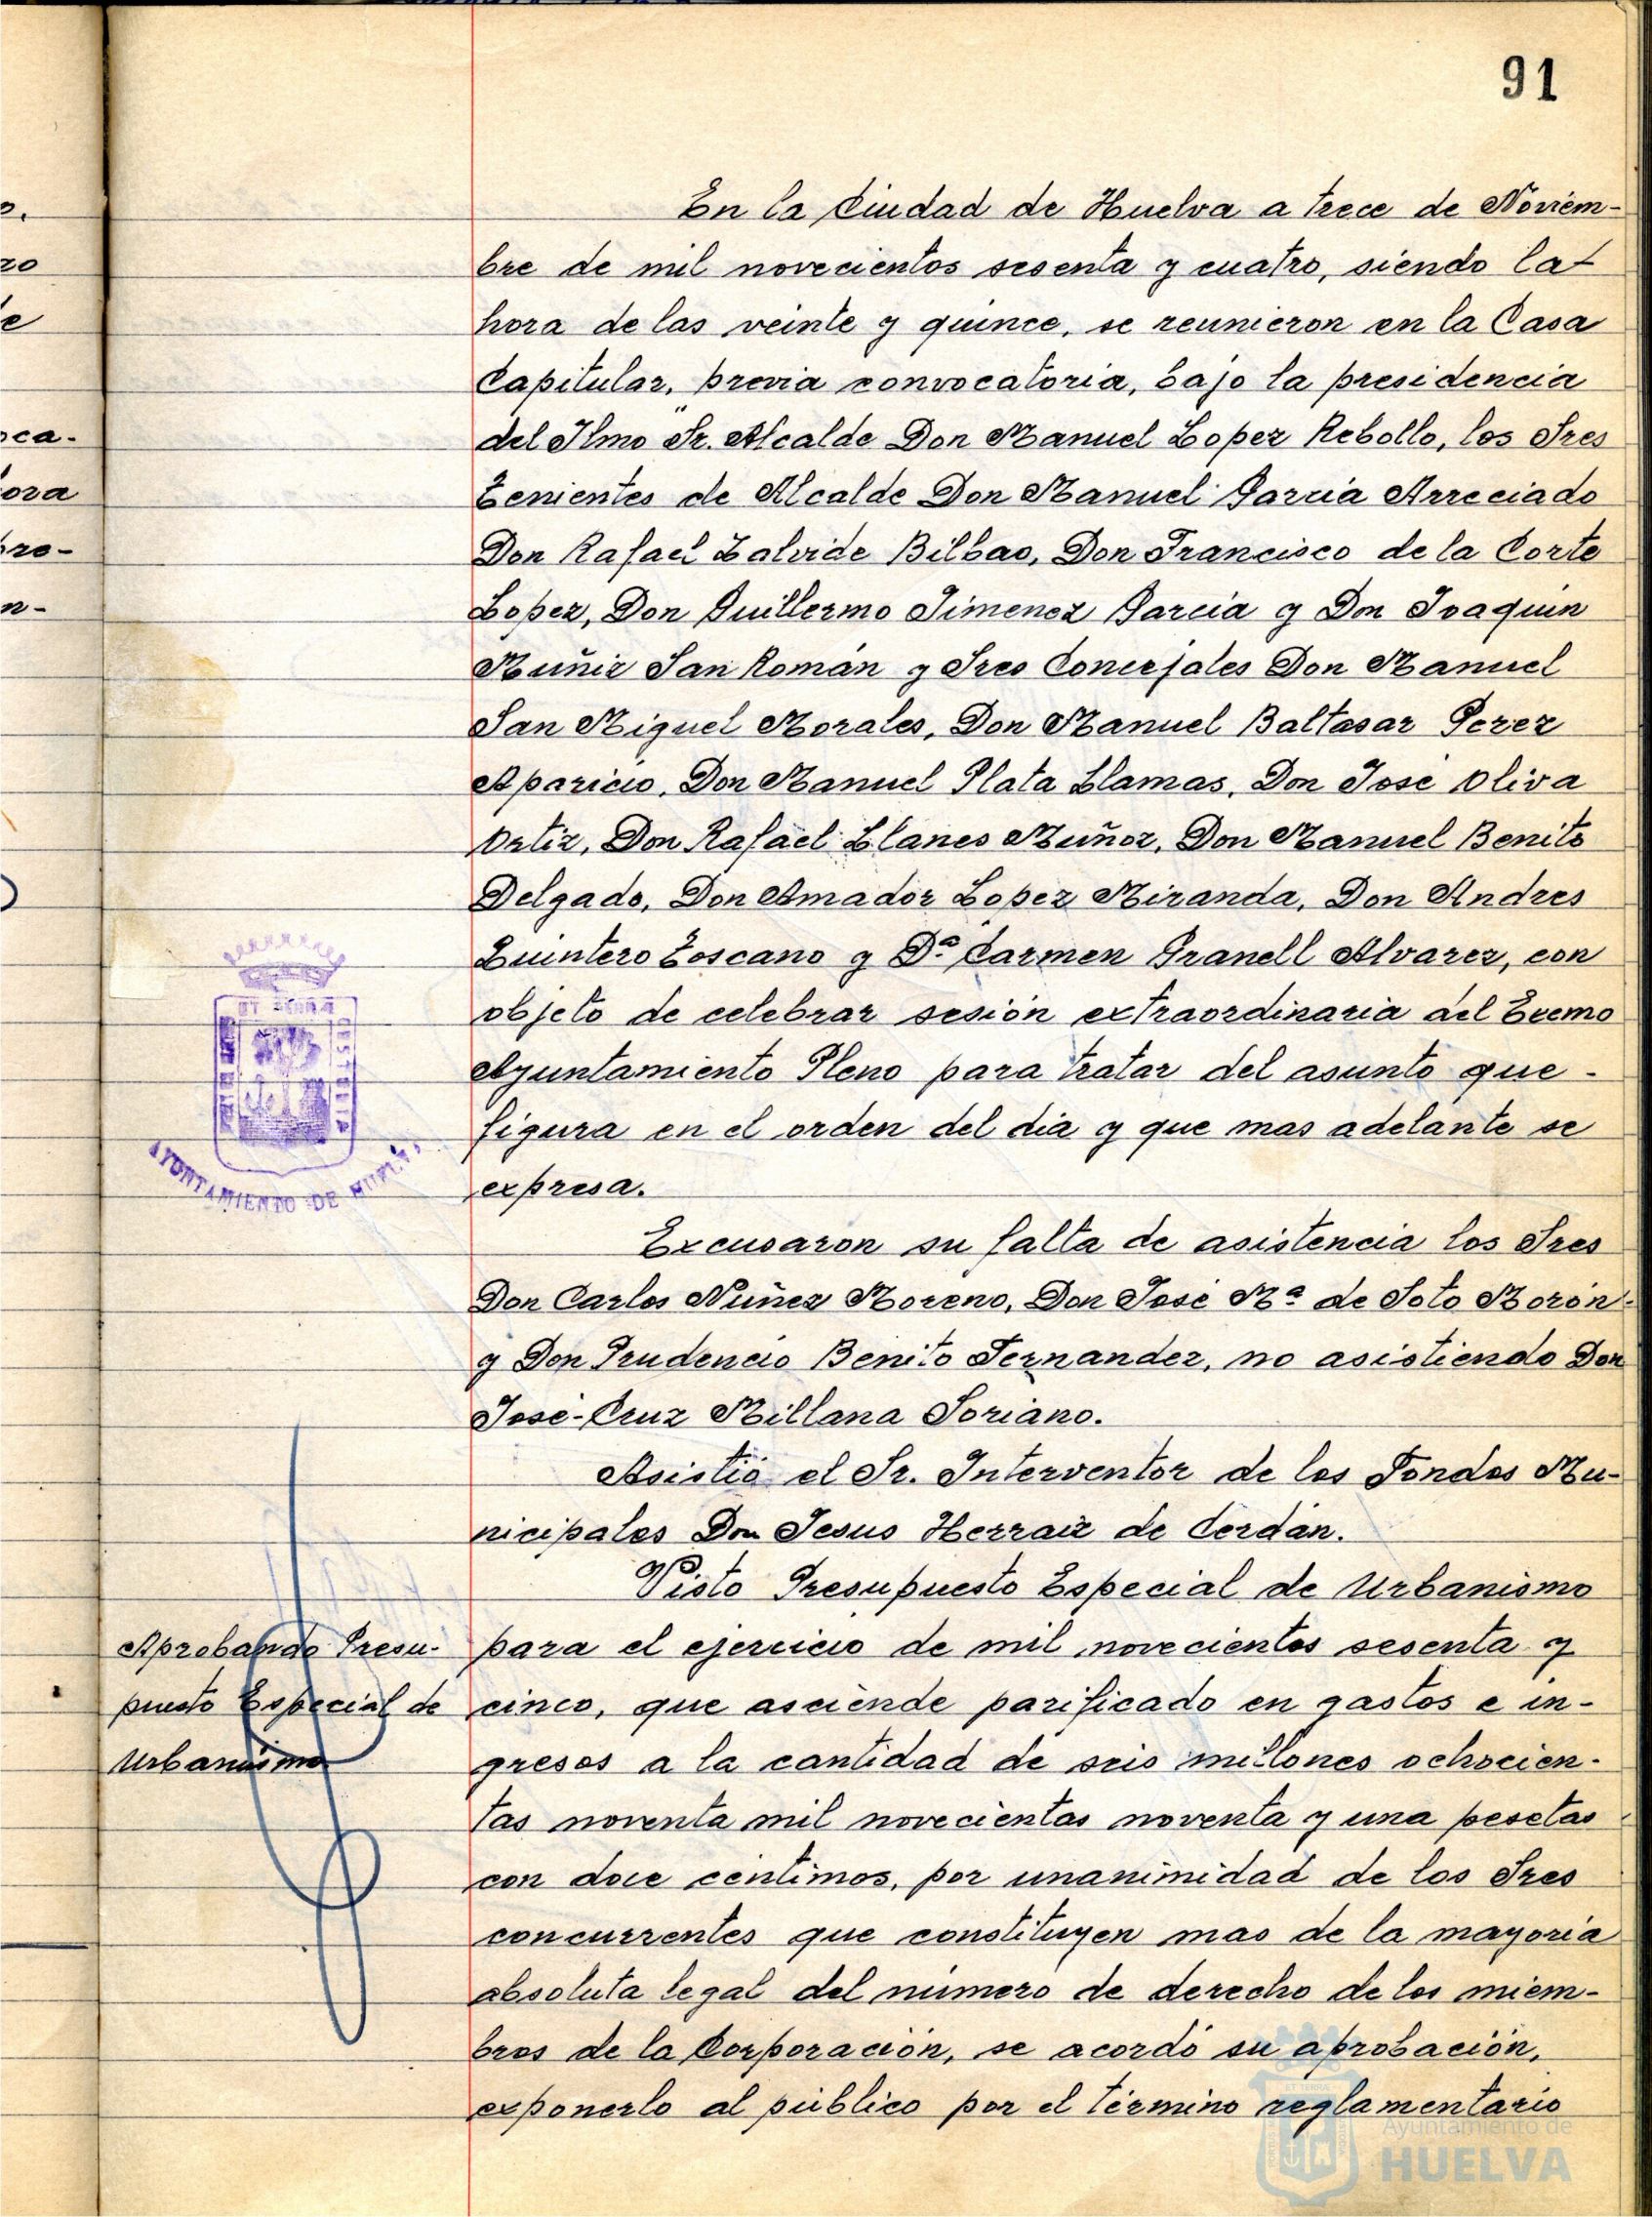 91
En la Ciudad de Huelva a trece de Noviem-
bre de mil novecientos sesenta y cuatro, siendo la
hora de las veinte y quince, se reunieron en la Casa
Capitular, previa convocatoria, bajo la presidencia
del Ilmo Sr. Alcalde Don Manuel Lopez Rebollo, los Sres
Tenientes de Alcalde Don Manuel Garcia Arreciado
Don Rafael Zalvide Bilbao, Don Francisco de la Corte
Lopez, Don Guillermo Jimenez Garcia y Don Joaquin
Muñiz San Román y Sres Concejales Don Manuel
San Miguel Morales, Don Manuel Baltasar Perez
Aparicio, Don Manuel Plata Llamas, Don José Oliva
Ortiz, Don Rafael Llanes Muñoz, Don Manuel Benito
Delgado, Don Amador Lopez Miranda, Don Andres
Quintero Toscano y Dª Carmen Granell Alvarez, con
objeto de celebrar sesión extraordinaria del Excmo
Ayuntamiento Pleno para tratar del asunto que -
figura en el orden del dia y que mas adelante se
expresa.
AYUNTAMIENTO DE HUELVA
Excusaron su falta de asistencia los Sres
Don Carlos Nuñez Moreno, Don José Mª de Soto Morón-
y Don Prudencio Benito Fernandez, no asistiendo Don
José-Cruz Millana Soriano.
Asistió el Sr. Interventor de los Fondos Mu-
nicipales Don Jesus Herraiz de Cerdán.
Visto Presupuesto Especial de Urbanismo
Aprobando Presu-
puesto Especial de
Urbanismo
para el ejercicio de mil novecientos sesenta y
cinco, que asciende parificado en gastos e in-
gresos a la cantidad de seis millones ochocien-
tas noventa mil novecientas noventa y una pesetas
con doce centimos, por unanimidad de los Sres
concurrentes que constituyen mas de la mayoria
absoluta legal del número de derecho de los miem-
bros de la Corporación, se acordó su aprobación,
exponerlo al público por el término reglamentario
Ayuntamiento de
HUELVA